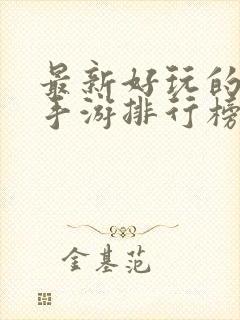 最新好玩的
手游排行榜
金基范